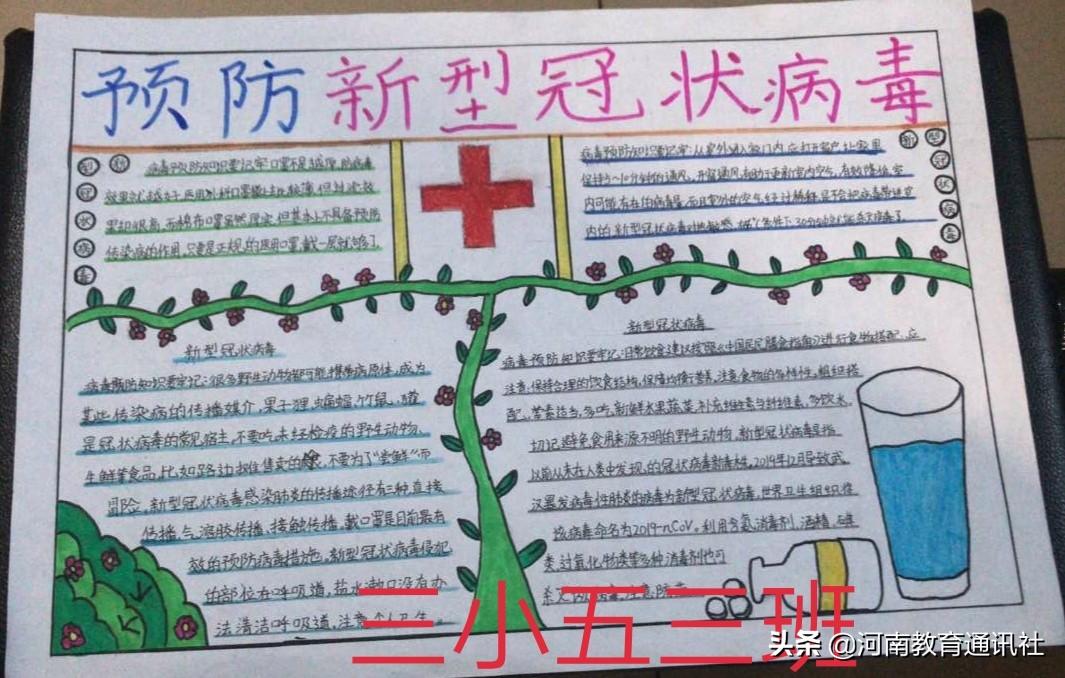 预防新型冠状病毒
新型冠状病毒
病毒预防知识要牢记:口罩不是越厚,防病毒
效果就越好,医用外科口罩摸上去较薄,但过滤效
果却很高,而棉布口罩虽然厚实,但基本上不具备预防
传染病的作用,只要是正规的医用口罩,戴一层就够了。
新型冠状病毒
病毒预防知识要牢记:从室外进入家门内,应打开窗户,让家里
保持5~10分钟的通风,开窗通风有助于更新室内空气,有效降低室
内可能存在的病毒量,而且室外的空气经过稀释,是不会把病毒带进室
内的,新型冠状病毒对热敏感,56℃条件下,30分钟就能杀灭病毒了
新型冠状病毒
病毒预防知识要牢记:很多野生动物都可能携带病原体,成为
某些传染病的传播媒介,果子狸、蝙蝠、竹鼠、獾
是冠状病毒的常见宿主,不要吃未经检疫的野生动物、
生鲜等食品,比如路边摊售卖的,不要为了“尝鲜”而
冒险。新型冠状病毒感染肺炎的传播途径有三种直接
传播,气溶胶传播,接触传播,戴口罩是目前最有
效的预防病毒措施。新型冠状病毒侵犯
的部位在呼吸道,盐水漱口没有办
法清洁呼吸道,注意个人卫生。
新型冠状病毒
病毒预防知识要牢记:日常饮食建议按照《中国居民膳食指南》进行食物搭配,应
注意,保持合理的饮食结构,保障均衡营养,注意食物的多样性,粗细搭
配、荤素适当,多吃新鲜水果蔬菜,补充维生素与纤维素,多饮水。
切记避免食用来源不明的野生动物。新型冠状病毒是指
以前从未在人类中发现的冠状病毒新毒株。2019年12月导致武
汉暴发病毒性肺炎的病毒为新型冠状病毒,世界卫生组织将
该病毒命名为2019-nCoV。利用含氯消毒剂,酒精,碘
类,过氧化物类等多种消毒剂也可
杀灭
三小五三班
头条 @河南教育通讯社